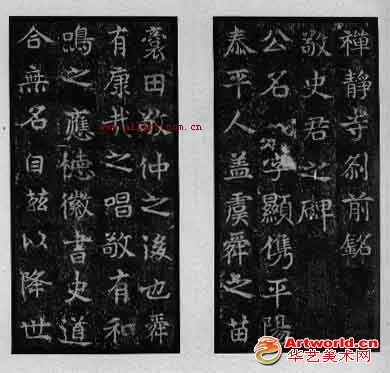 禪静寺刹前銘
敬史君之碑
公名字顯儁平陽
泰平人盖虞舜之苗
裔田敬仲之後也舜
有康哉之唱敬有和
鳴之應徳徽書史道
合無名自兹以降世
Artworld.cn
华艺美术网